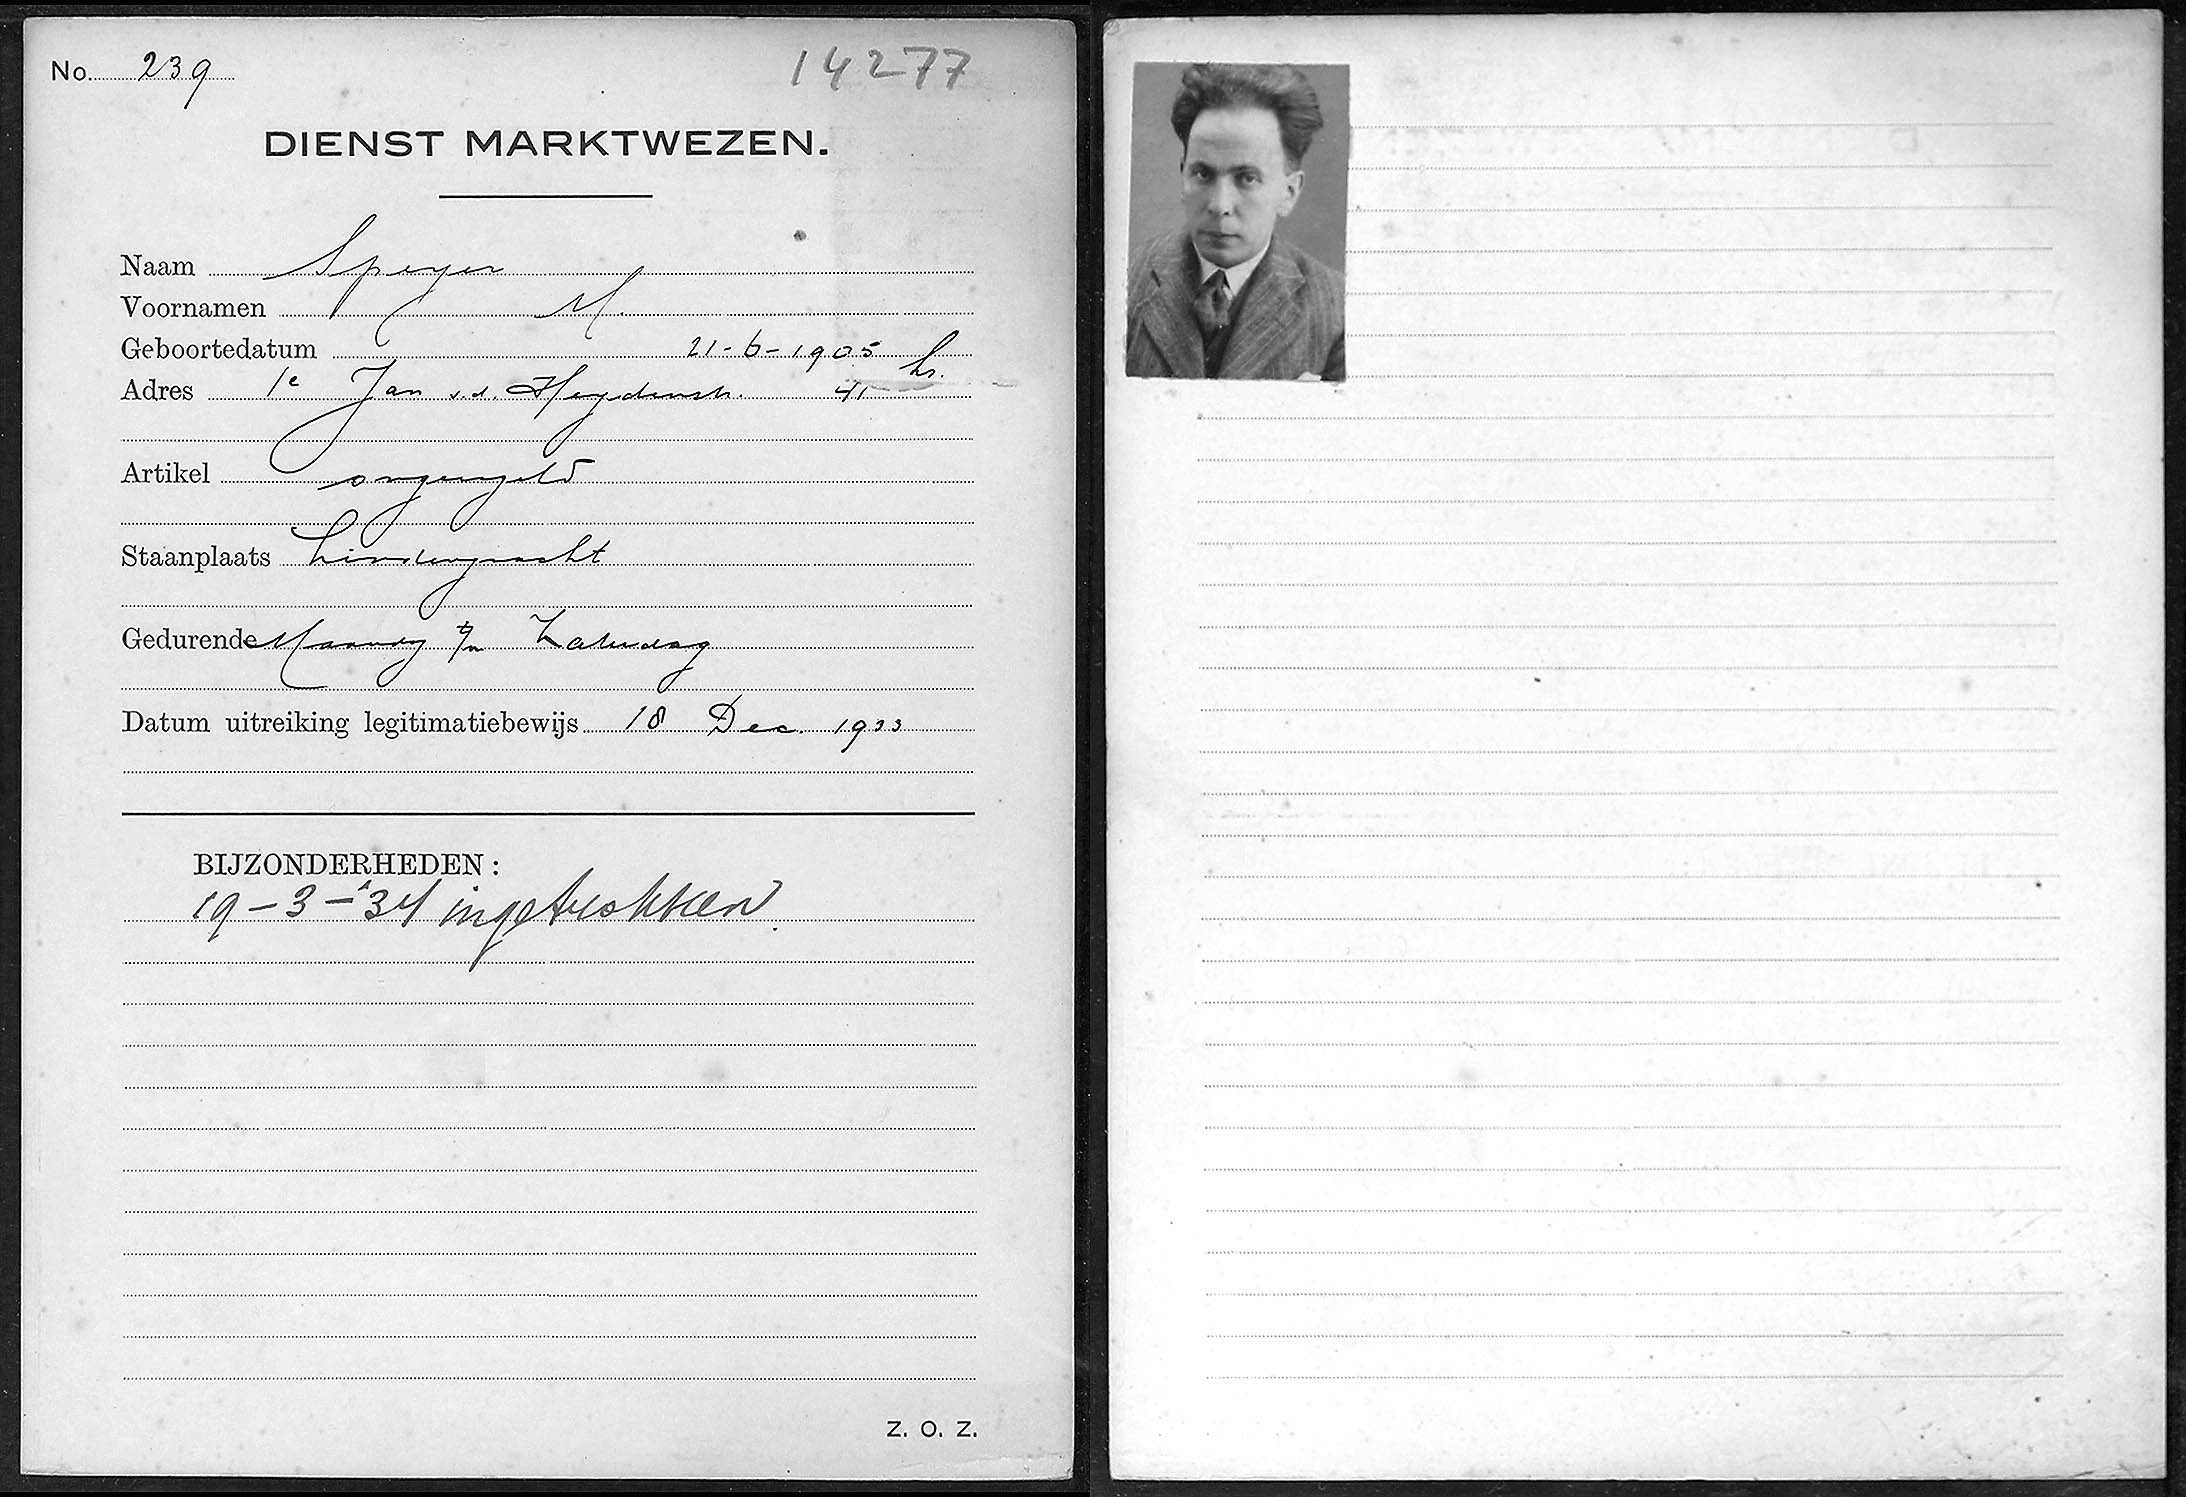 No. 239
14277
DIENST MARKTWEZEN.
Naam Speyer
Voornamen M.
Geboortedatum 21-6-1905
Adres 1e Jan v.d. Heydenstr. 41 hs.
Artikel ongeregeld
Staanplaats Lindengracht
Gedurende Maandag t/m Zaterdag
Datum uitreiking legitimatiebewijs 18 Dec. 1933
BIJZONDERHEDEN:
19-3-'34 ingetrokken.
Z. O. Z.